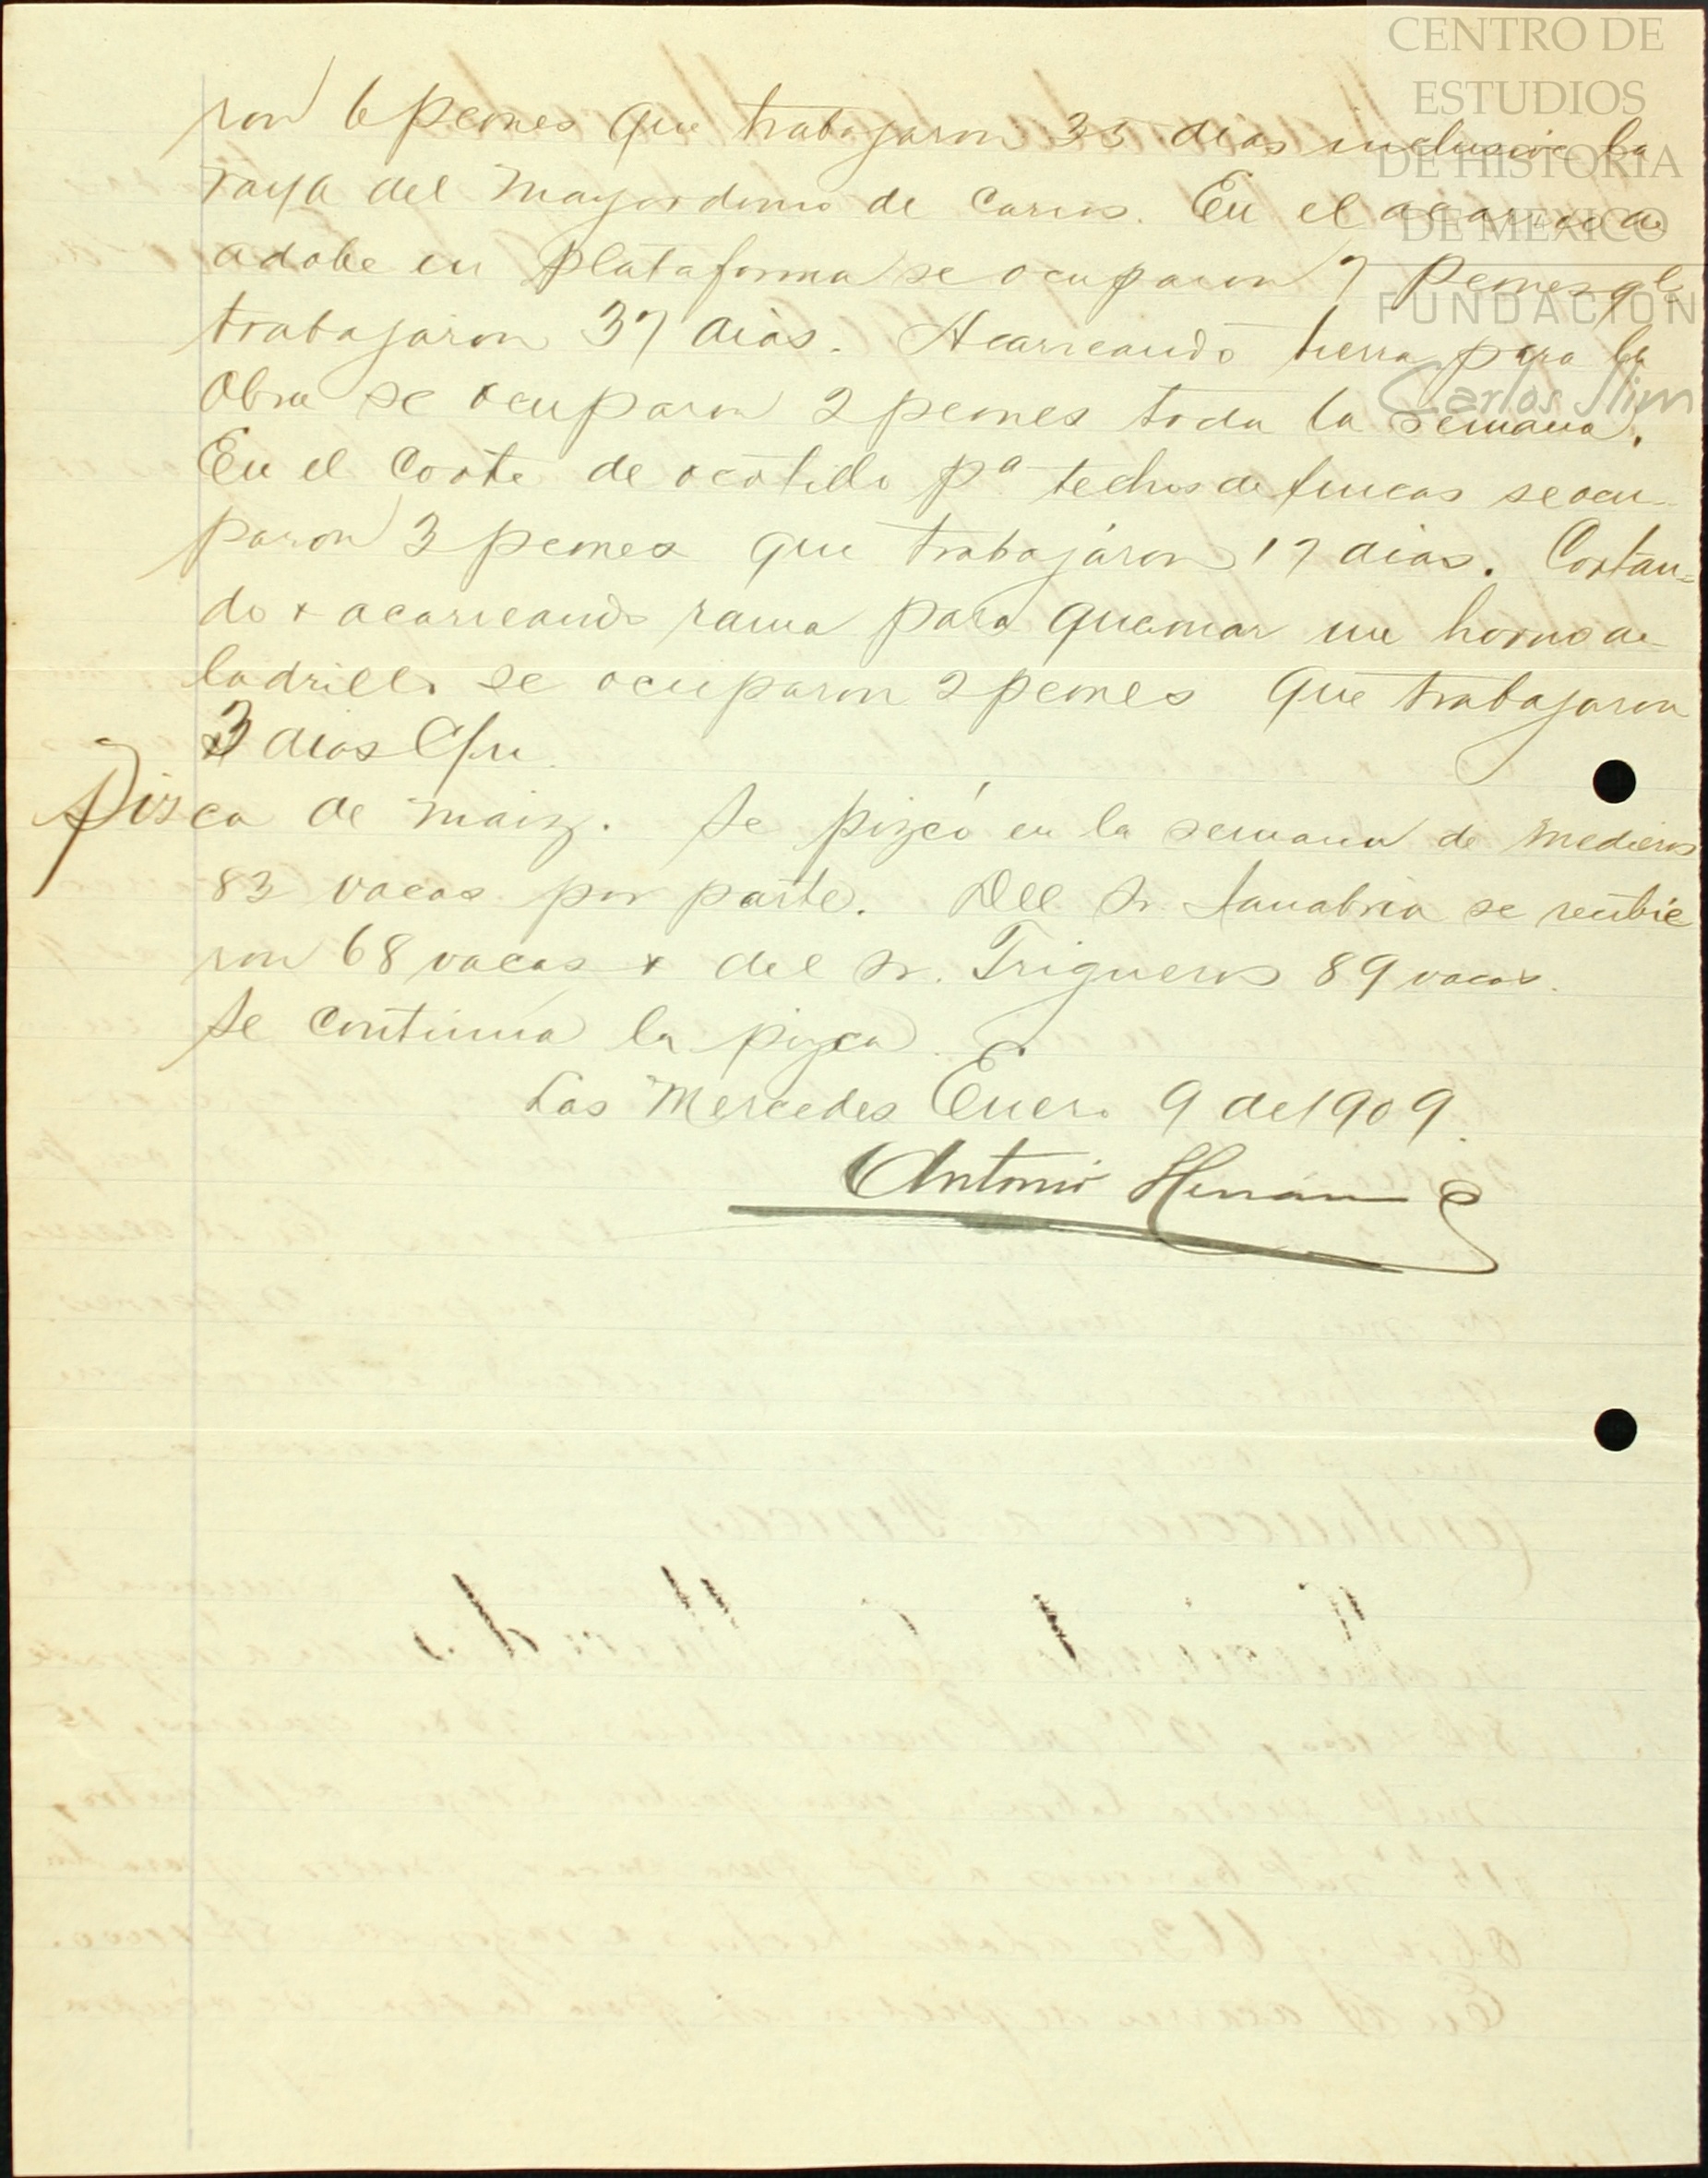 CENTRO DE
ESTUDIOS
DE HISTORIA
DE MEXICO
FUNDACIÓN
Carlos Slim
ron 6 peones que trabajaron 35 dias inclusive la
raya del Mayordomo de Carros. En el acarreo de
adobe en plataforma se ocuparon 7 peones q.e
trabajaron 37 dias. Acarreando tierra para la
Obra se ocuparon 2 peones toda la semana.
En el Corte de ocotido pa techos de fincas se ocu-
paron 3 peones que trabajaron 17 dias. Cortan-
do y acarreando rama para quemar un horno de
ladrillo se ocuparon 2 peones que trabajaron
3 dias C/u.
Pizca de maiz. Se pizcó en la semana de medieros
83 vacas por parte. Del Sr. Sanabria se recibie
ron 68 vacas y del Sr. Trigueros 89 vacas.
Se continua la pizca.
Las Mercedes Enero 9 de 1909.
Antonio